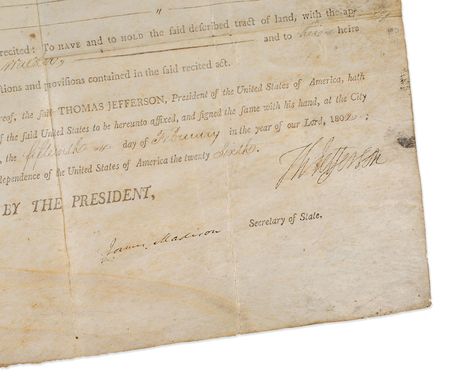 "
recited: To HAVE and to HOLD the said described tract of land, with the ap-
and to heirs
tions and provisions contained in the said recited act.
eof, the said THOMAS JEFFERSON, President of the United States of America, hath
f the said United States to be hereunto affixed, and signed the same with his hand, at the City
, the fifteenth day of February in the year of our Lord, 1802 ;
dependence of the United States of America the twenty sixth.
Th Jefferson
BY THE PRESIDENT,
James Madison Secretary of State.